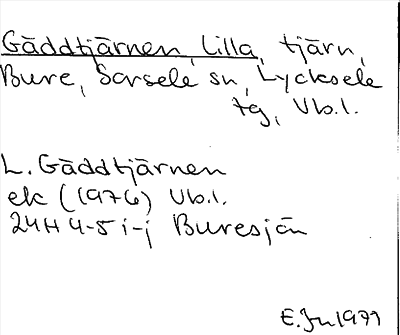 Gäddtjärnen, Lilla, tjärn,
Bure, Sorsele sn, Lycksele
tg, Vb.l.
L. Gäddtjärnen
ek (1976) Vb.l.
24H 4-5 i-j Buresjön
E.Jn 1977